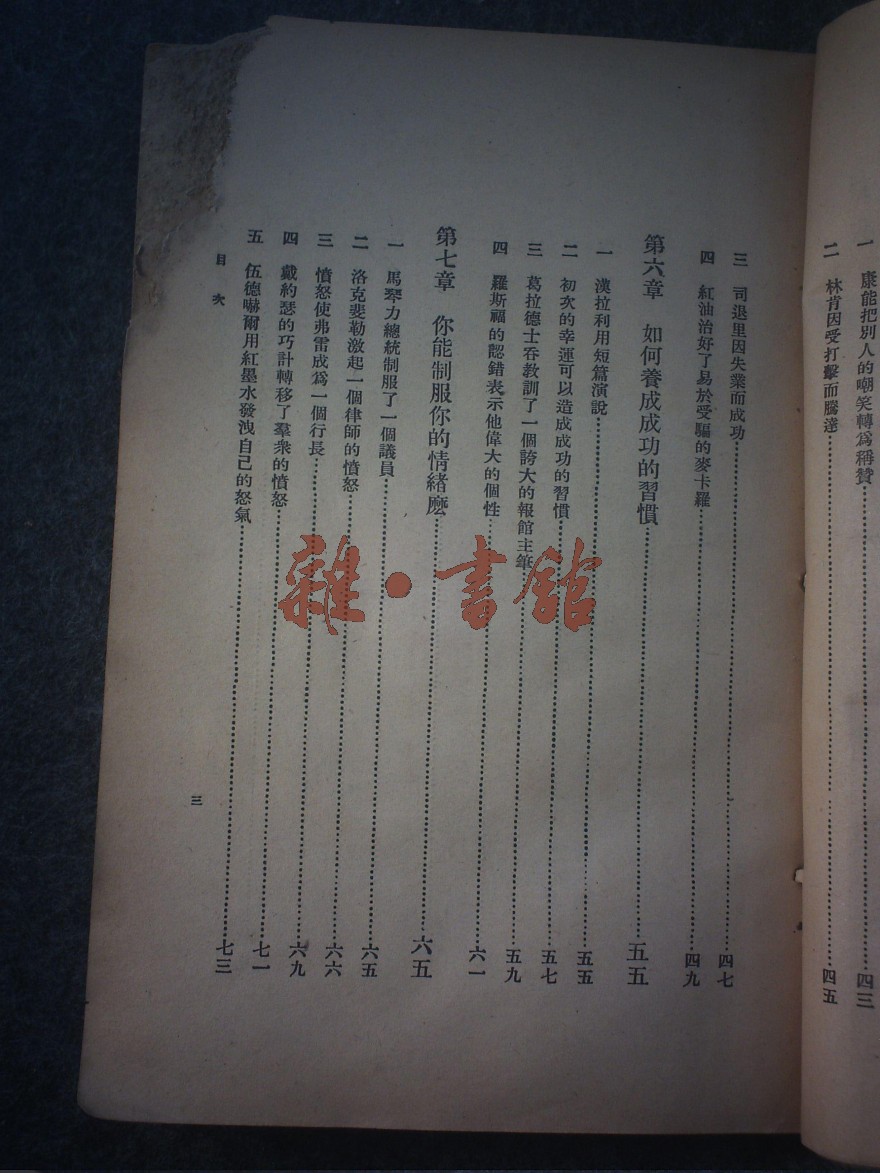 一　康能把別人的嘲笑轉爲稱贊……四三
二　林肯因受打擊而騰達……四五
三　司退里因失業而成功……四七
四　紅油治好了易於受驅的麥卡羅……四九
第六章　如何養成成功的習慣……五五
一　漢拉利用短篇演說……五五
二　初次的幸運可以造成成功的習慣……五七
三　葛拉德士吞教訓了一個誇大的報館主筆……五九
四　羅斯福的認錯表示他偉大的個性……六一
第七章　你能制服你的情緒麽……六五
一　馬琴力總統制服了一個議員……六五
二　洛克斐勒激起一個律師的憤怒……六六
三　憤怒使弗雷成爲一個行長……六九
四　戴約瑟的巧計轉移了羣衆的憤怒……七一
五　伍德嚇爾用紅墨水發洩自己的怒氣……七三
目次
三
雜·書館